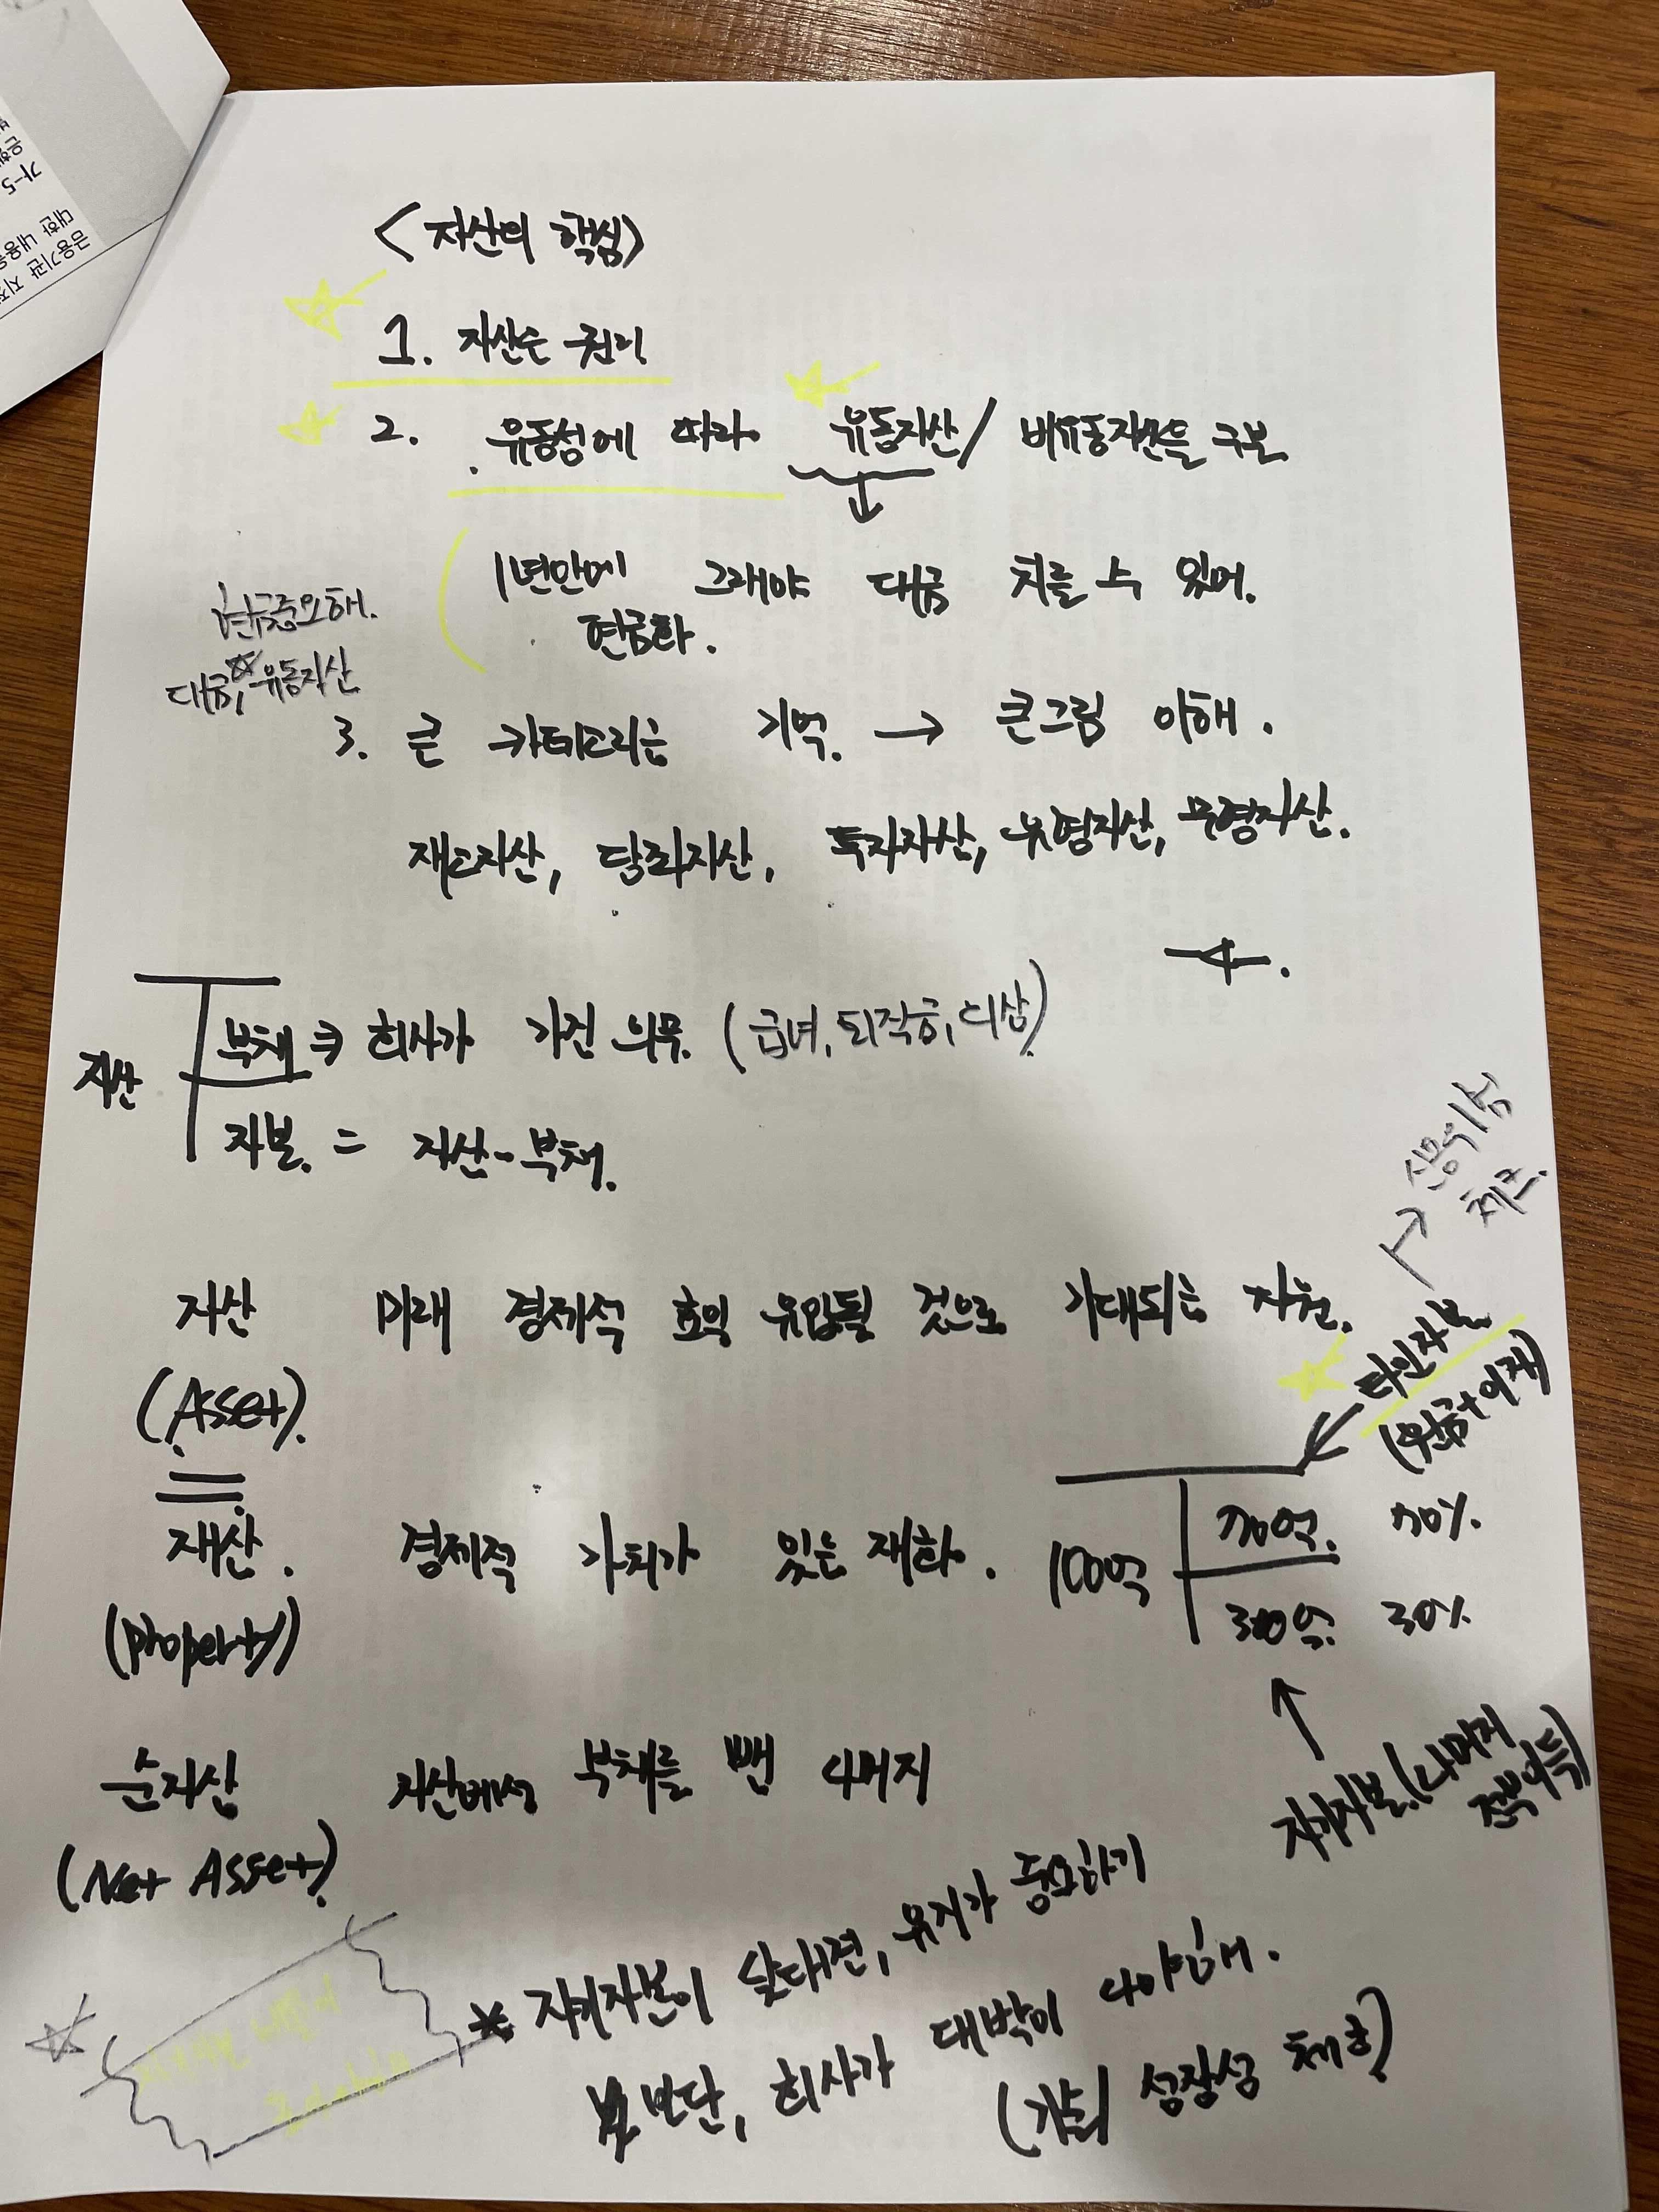 <자산의 핵심>
1. 자산은 권리
2. 유동성에 따라 유동자산/ 비유동자산을 구분
1년안에 그래야 대금 치를 수 있어.
현금화.
현금중요해.
대금, 유동자산
3. 큰 카테고리는 기억. → 큰그림 이해.
재고자산, 당좌자산, 투자자산, 유형자산, 무형자산.
자산
부채 ⇒ 회사가 가진 의무 (급여, 퇴직금, 외상)
자본. = 자산-부채.
→ 신용위험
체크.
자산 미래 경제적 효익 유입될 것으로 기대되는 자원.
(Asset).
타인자본.
(원금+이자)
재산. 경제적 가치가 있는 재화.
(Property)
100억
70억. 70%.
30억. 30%.
자기자본.(나머지
전부 이득)
순자산 자산에서 부채를 뺀 나머지
(Net Asset)
* 자기자본이 낮대전, 유지가 중요하기
보단, 회사가 대박이 나야임해.
성장성 체크)